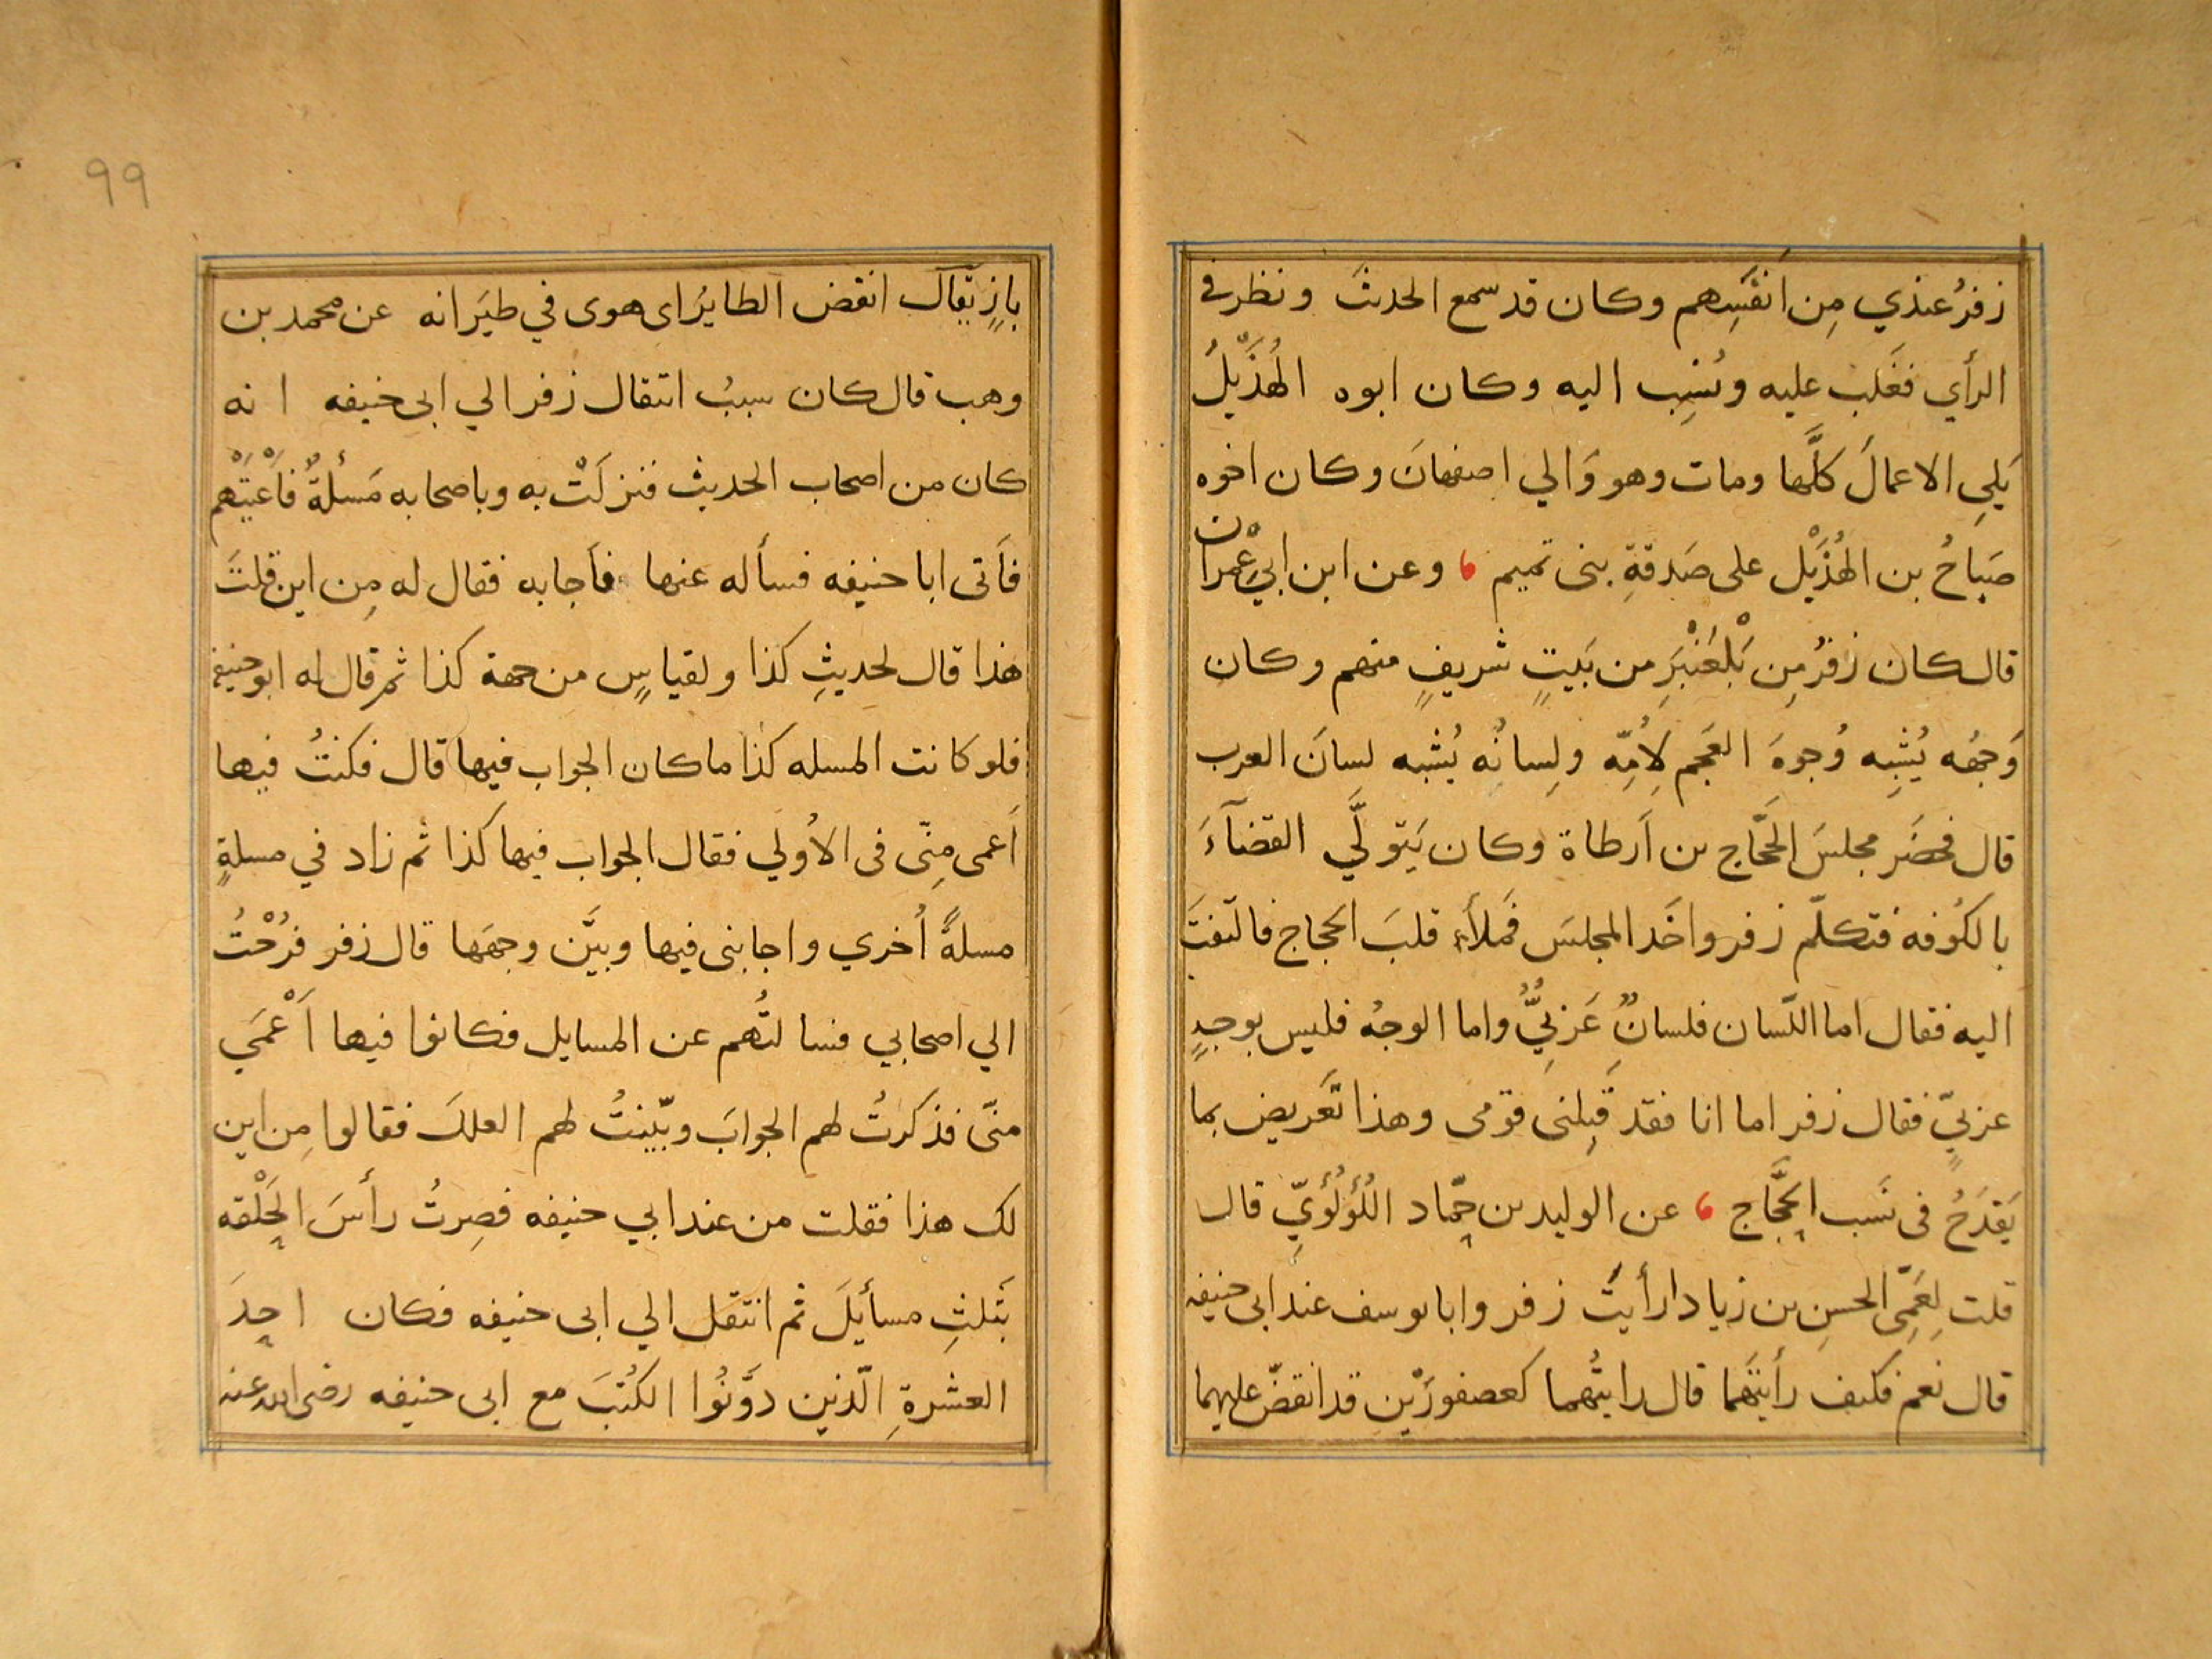 زفرُ عندي مِن انفَسِهم وكان قد سمع الحديثَ ونظر في
الرأي فغَلب عليه ونُسِب اليه وكان ابوه الهُذَيْلُ
يَلِي الاعمالَ كلَّها ومات وهو وَالي اصفهانَ وكان اخوه
صَبَاحُ بن الهُذَيْل على صَدقةِ بنى تميم ، وعن ابن ابي عِمْران
قال كان زفرُ مِن بَلْعَنْبَرِ من بَيتٍ شريفٍ منهم وكان
وَجهُه يُشبِه وُجوهَ العَجَم لِاُمِّه ولِسانُه يُشبه لسانَ العرب
قال فحضَر مجلسَ الحَجّاج بن اَرطاة وكان يَتولَّي القضآءَ
بالكُوفه فتكلّم زفر واخَد المجلسَ فمَلأء قلبَ الحجاج فالتفتَ
اليه فقال اما اللّسان فلسانٌ عَرَبِيٌّ واما الوجهُ فليس بوجهٍ
عربيٍّ فقال زفر اما انا فقد قَبِلنى قومى وهذا تَعريض بما
يَقدَحُ فى نَسب الحَجَّاج ، عن الوليد بن حمّاد اللُؤلُؤيِّ قال
قلت لِعَمِّى الحسنِ بن زياد ارأيتَ زفر وابا يوسف عند ابى حنيفه
قال نعم فكيف رأيتَهما قال رايتُهما كعصفورَيْن قد انقضّ عليهما
99
بازٍ يقال انقض الطايرُ اى هوى في طيَرانه عن محمد بن
وهب قال كان سببُ انتقال زفر الي ابى حنيفه انه
كان من اصحاب الحديث فنزلَتْ به وباصحابه مَسئلةٌ فاَعْيَتْهم
فاَتى ابا حنيفه فسأله عنها فاَجابه فقال له مِن اين قلتَ
هذا قال لحديثِ كذا ولقياسٍ من جهة كذا ثم قال له ابو حنيفه
فلو كانت المسله كذا ما كان الجواب فيها قال فكنتُ فيها
اَعمى مِنّى فى الاُولي فقال الجواب فيها كذا ثم زاد في مسلةٍ
مسلةً اُخري واجابنى فيها وبيَّن وجهَها قال زفر فرُحْتُ
الي اصحابي فسالتُهم عن المسايل فكانوا فيها اَعْمَي
منّى فذكرتُ لهم الجوابَ وبيّنتُ لهم العلل فقالوا مِن اين
لك هذا فقلت من عند ابي حنيفه فصِرتُ رأسَ الحَلْقه
بثَلثِ مسأيلَ ثم انتقل الي ابى حنيفه فكان احدَ
العشرةِ الّذين دوَّنُوا الكُتبَ مع ابى حنيفه رضى الله عنه